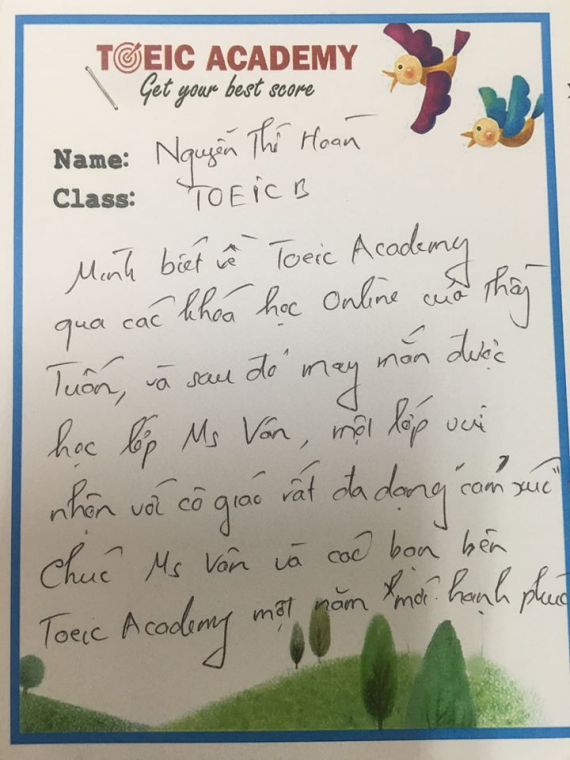 TOEIC ACADEMY
Get your best score
Name: Nguyễn Thị Hoàn
Class: TOEIC B
Mình biết về Toeic Academy
qua các khoá học Online của thầy
Tuấn, và sau đó may mắn được
học lớp Ms Vân, một lớp vui
nhộn với cô giáo rất đa dạng "cảm xúc"
Chúc Ms Vân và các bạn bên
Toeic Academy một năm mới hạnh phúc